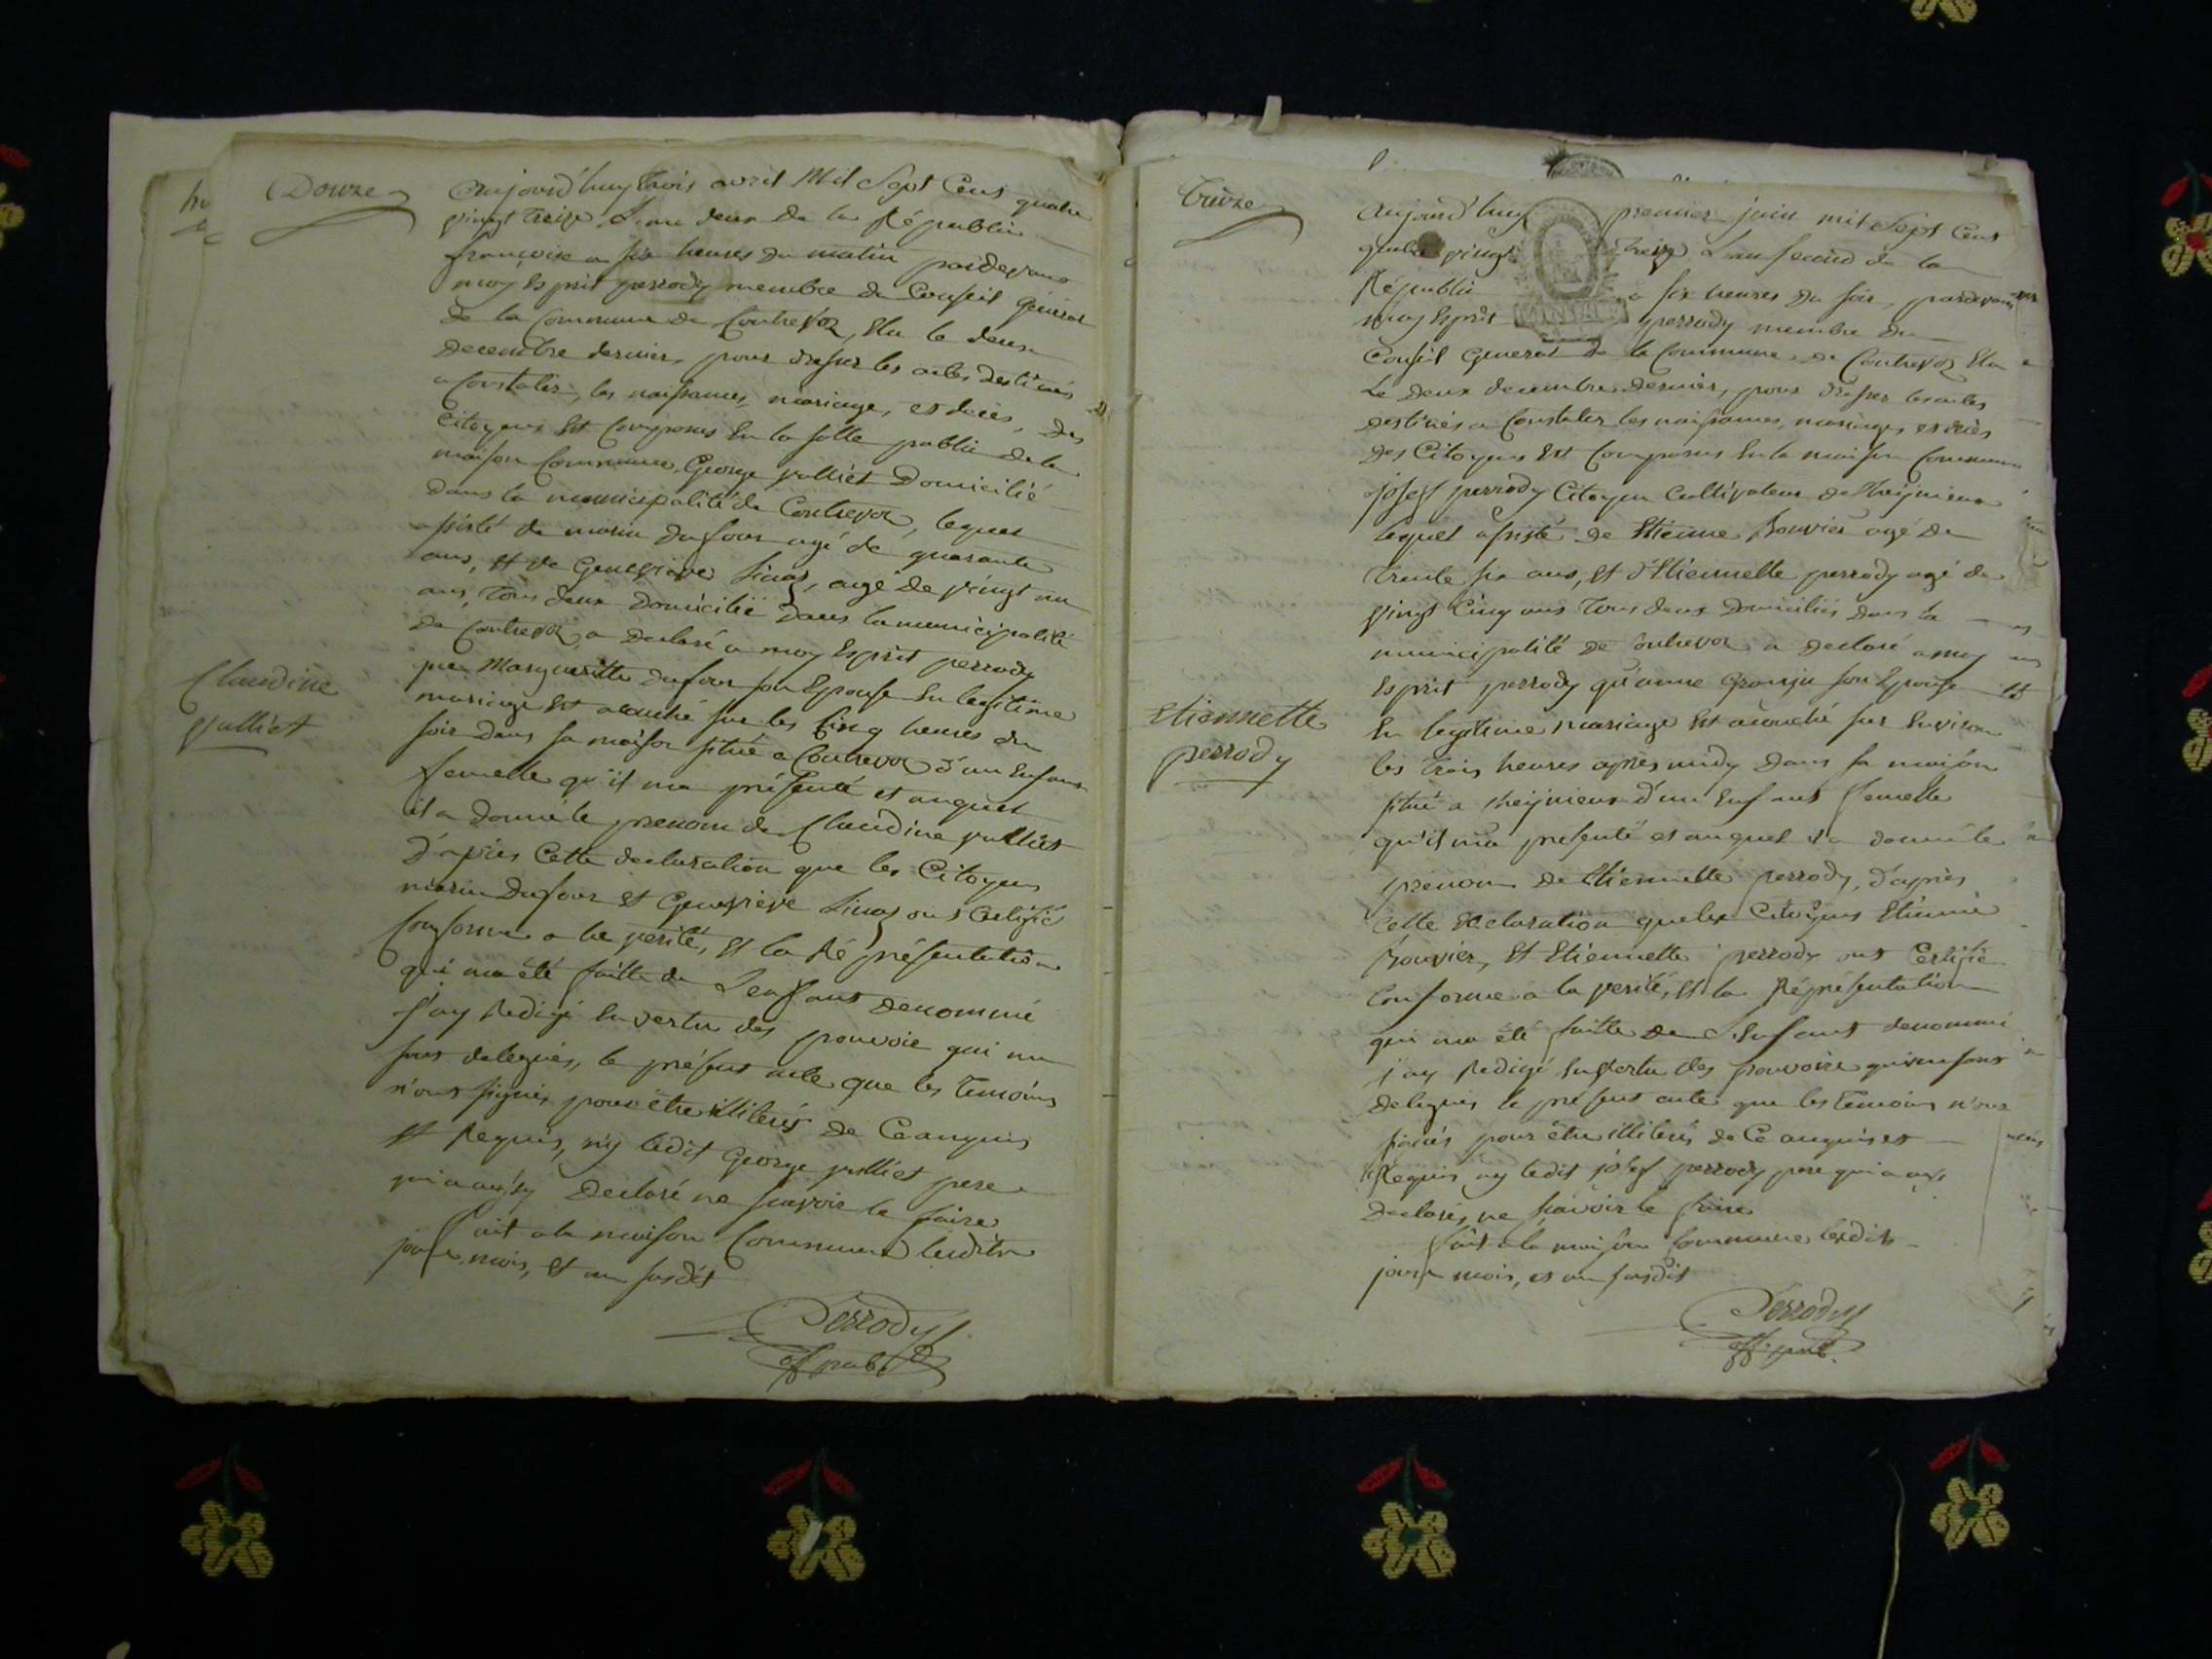 Douze
Aujourd'huy trois avril Mil Sept Cens quatre
vingt treize L'an deux de la Républic
françoise a six heures du matin pardevans
moy Esprit perrody membre du Conseil général
de la Commune de Contrevoz, Elu le deux
decembre dernier, pour dresser les actes destinés
a Constater, les naissances, mariage, et décès, des
Citoyens Est Comparus En la salle public de la
maison Commune, George julliet Domicilié
dans la municipalité de Contrevoz, lequel
assisté de marin dufour agé de quarante
ans, Et de Genevieve Sinaz, agé de vingt un
ans, tous deux domicilié dans la municipalité
de Contrevoz, a declaré a moy Esprit perrody
que Margueritte dufour son Epouse En legitime
mariage Est acouché sur les Cinq heures du
soir dans sa maison situé a Contrevoz d'un Enfant
femelle qu'il ma présenté et auquel
il a donné le prenom de Claudine julliet
D'après Cette declaration que les Citoyens
marin Dufour Et Genevieve Sinaz ont Certifié
Conforme a la verité, Et la Réprésentation
qui ma été faitte de L'enfant denommé
j'ay Redigé En vertu des pouvoir qui me
sont delegués, le présent acte que les temoins
n'ont signés pour être illiterés de Ce anquis
Et Requis, n'y ledit George julliet pere
qui a aussy Declaré ne sçavoir le faire
fait a la maison Commune lesdits
jour, mois, Et an susdit
Perrody
off. pub.
Claudine
julliet
treize
Aujourd'huy premier juin mil Sept Cens
quatre vingt treize L'an second de la
Républic a six heures du soir, pardevans
moy Esprit perrody membre du
Conseil General de la Commune de Contrevoz Elu
Le deux decembre dernier, pour dresser les actes
destinés a Constater les naissances, mariages, et décès
des Citoyens Est Comparus En la maison Commune
josef perrody Citoyen Cultivateur de
lequel assisté de Etienne Bouvier agé de
trente six ans, Et d'Etiennette perrody agé de
vingt Cinq ans tous deux Domiciliés dans la
municipalité de Contrevoz a declaré a moy
Esprit perrody qu'anne son Epouse
En legitime mariage Est acouché sur Environ
les trois heures après midy dans sa maison
situé a d'un Enfant femelle
qu'il ma présenté et auquel il a donné le
prenom de Etiennette perrody, d'après
Cette declaration que les Citoyens Etienne
Bouvier, Et Etiennette perrody ont Certifié
Conforme a la verité, Et la Réprésentation
qui ma été faitte de L'Enfant denommé
j'ay Redigé En vertu des pouvoir qui me sont
delegués le présent acte que les temoins n'ont
signés pour être illiterés de Ce anquis et
Requis, ny ledit josef perrody pere qui a aussy
Declaré, ne sçavoir le faire
fait a la maison Commune lesdits
jour, mois, et an susdit
Perrody
off. pub.
Etiennette
perrody